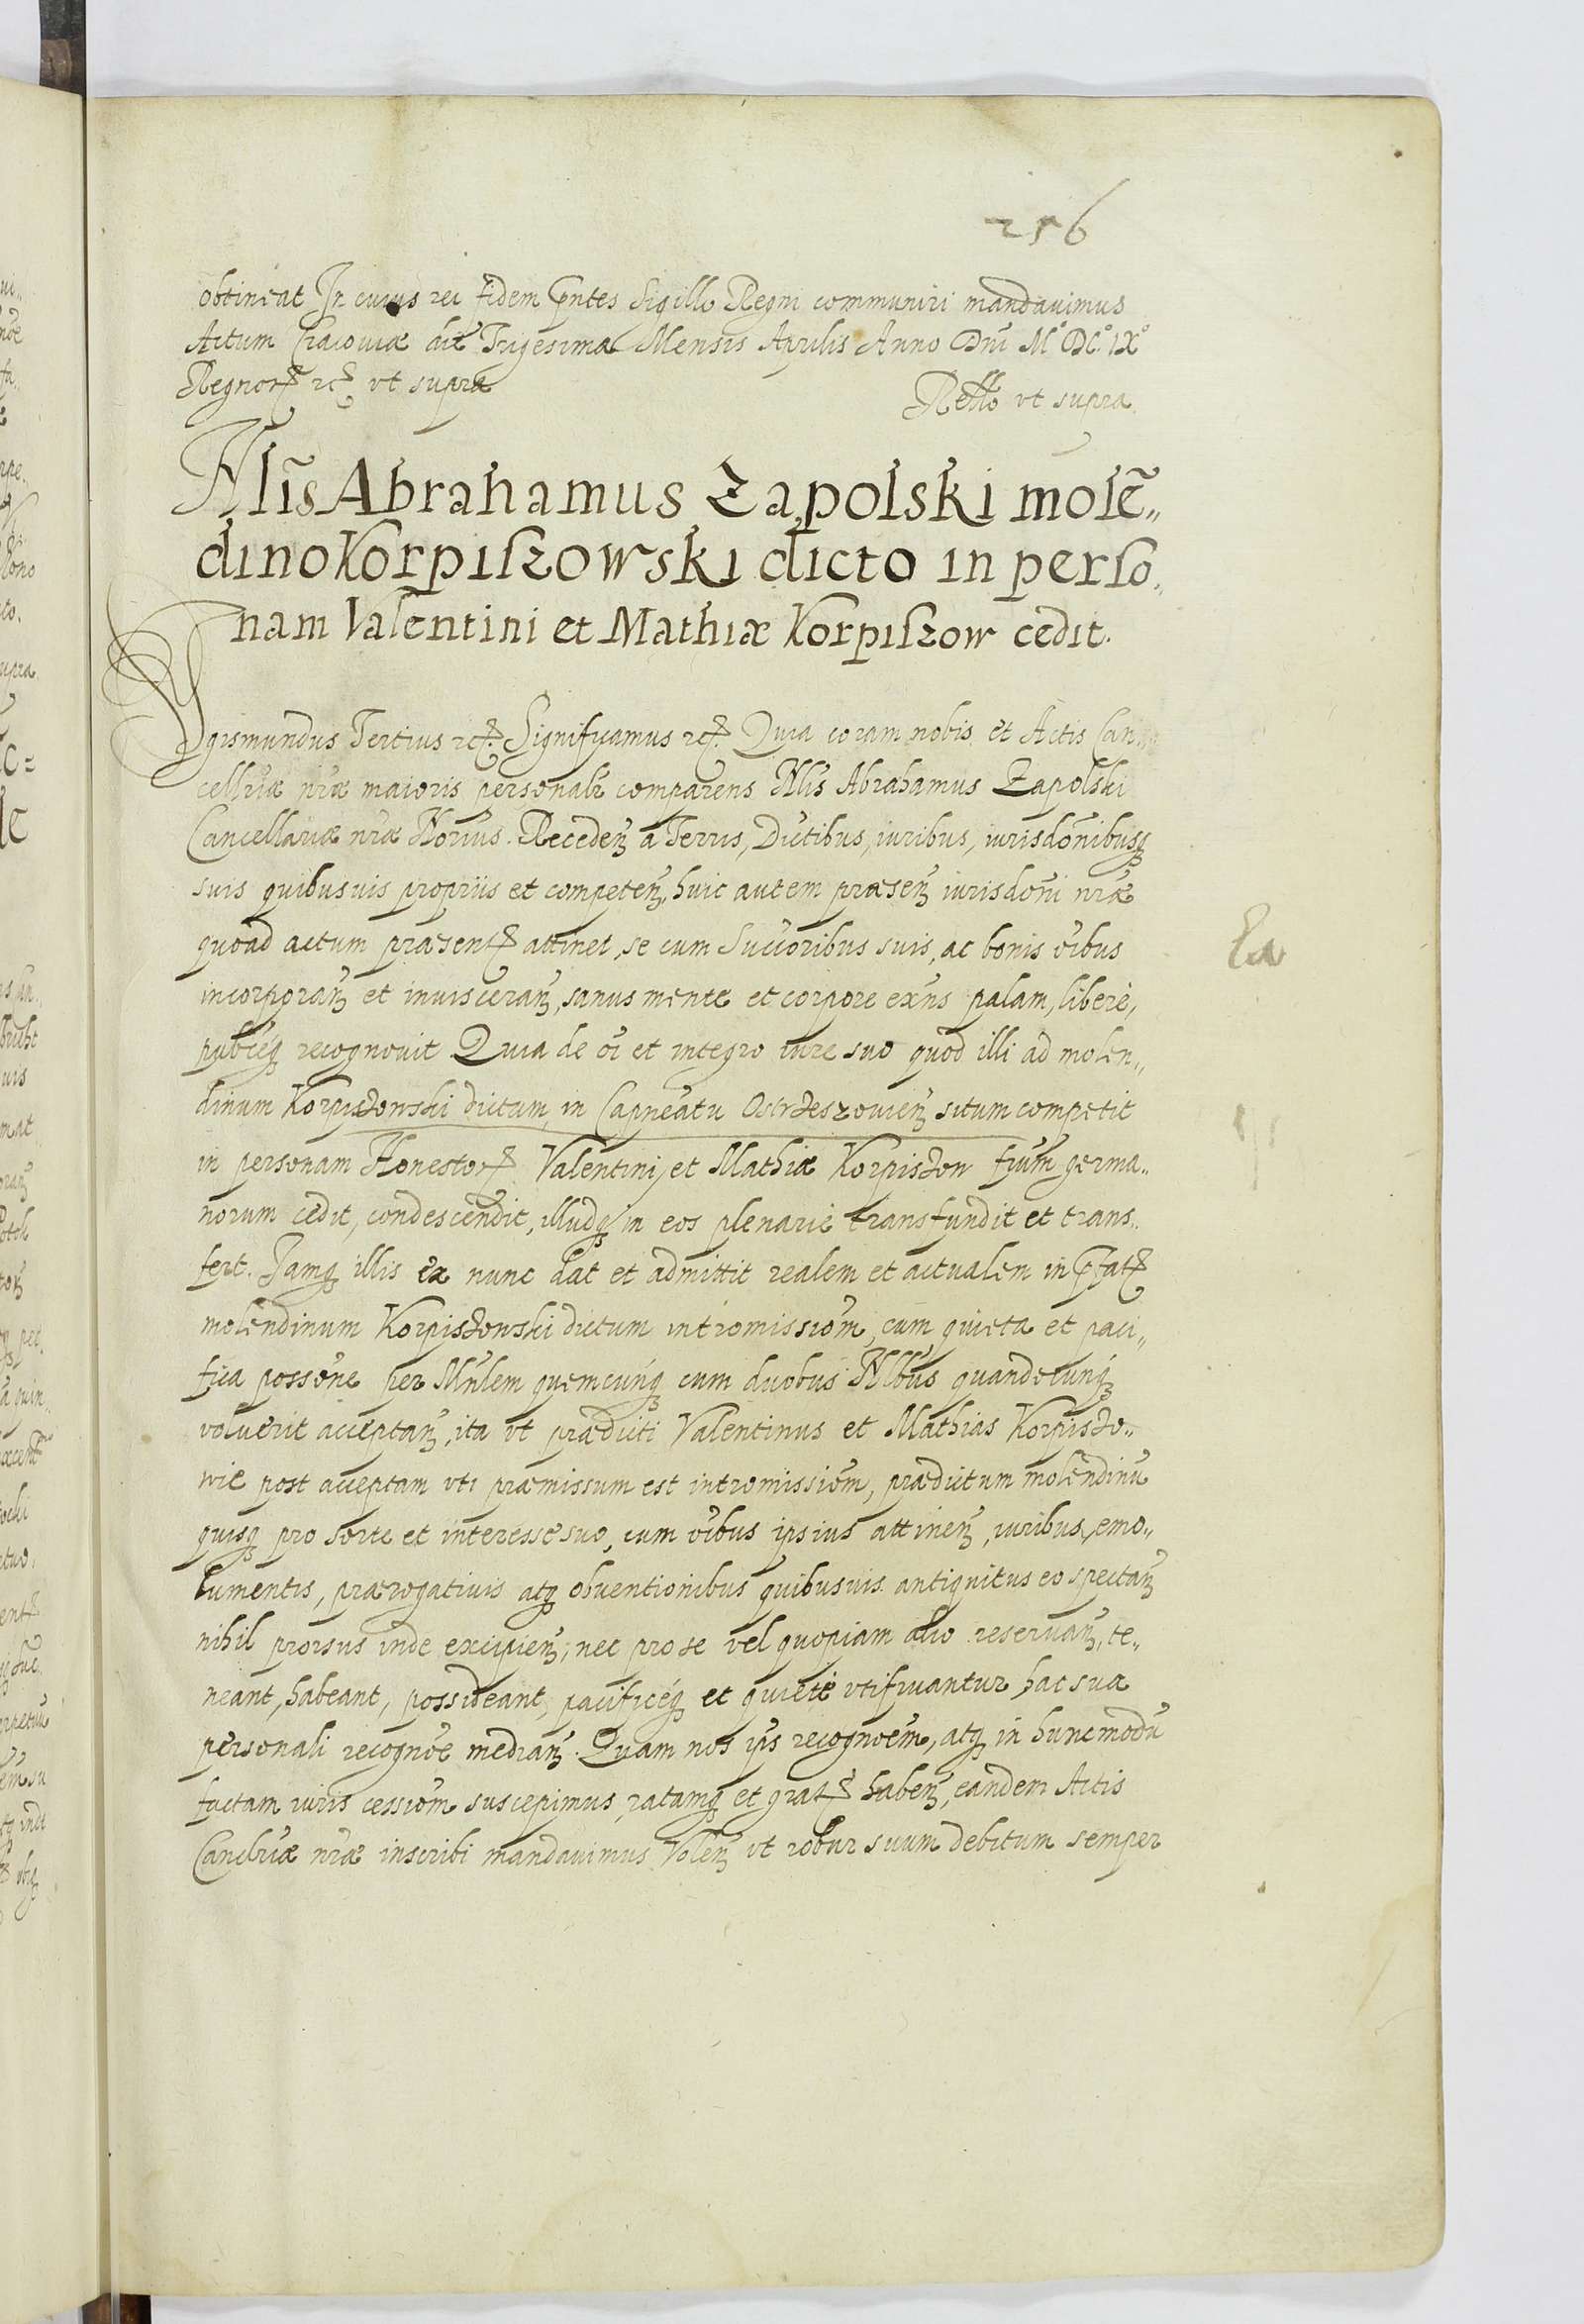 256
obtineat In cuius rei fidem pn̄tes Sigillo Regni communiri mandauimus
Actum Cracouiæ die Trigesima Mensis Aprilis Anno Dnī M° DC° IX°
Regnorꝝ rcꝫ vt supra
Rello vt supra
Nlis̄ Abrahamus Zapolski molē„
dino Korpiszowski dicto in perso„
nam Valentini et Mathiæ Korpiszow cedit.
Sygismundus Tertius rcꝫ. Significamus rcꝫ. Quia coram nobis et Actis Can„
cellriæ nr̄æ maioris personalr comparens Nlis Abrahamus Zapolski
Cancellariæ nr̄æ Norius. Recedenꝫ a Terris, Dictibus, iuribus, iurisdōnibusqꝫ
suis quibusuis propriis et competenꝫ, huic autem præsenꝫ iurisdōni nr̄æ
quoad actum præsentꝫ attinet, se cum Succoribus suis, ac bonis oībus
incorporanꝫ et inuisceranꝫ, sanus mente et corpore exn̄s palam, liberè,
pubcéqꝫ recognouit Quia de oī et integro iure suo quod illi ad molen„
dinum Korpiszowski dictum, in Capneatu Ostrzeszouienꝫ situm competit
in personam Honestorꝝ Valentini et Mathiæ Korpiszow frum̄ germa„
norum cedit, condescendit, illudqꝫ in eos plenariè transfundit et trans„
fert. Jamqꝫ illis ex nunc dat et admittit realem et actualem in pfatꝫ
molendinum Korpiszowski dictum intromissiom̄, cum quieta et paci„
fica possōne per Mnlem quemcunqꝫ cum duobus Nlbus quandocunqꝫ
voluerit acceptanꝫ, ita vt prædicti Valentinus et Mathias Korpiszo„
wie post acceptam vti præmissum est intromissiom̄, prædictum molendinū
quisqꝫ pro sorte et interesse suo, cum oībus ipsius attinenꝫ, iuribus, emo„
lumentis, prærogatiuis atqꝫ obuentionibus quibusuis antiquitus eo spectanꝫ
nihil prorsus inde excipienꝫ, nec pro se vel quopiam alio reseruanꝫ, te„
neant, habeant, possideant, pacificéqꝫ et quietè vtifruantur hac sua
personali recognōe medianꝫ. Quam nos ipīs recognoēm, atqꝫ in hunc modū
factam iuris cessiom̄ suscepimus, ratamqꝫ et gratꝫ habenꝫ, eandem Actis
Canclriæ nr̄æ inscribi mandauimus Volenꝫ vt robur suum debitum semper